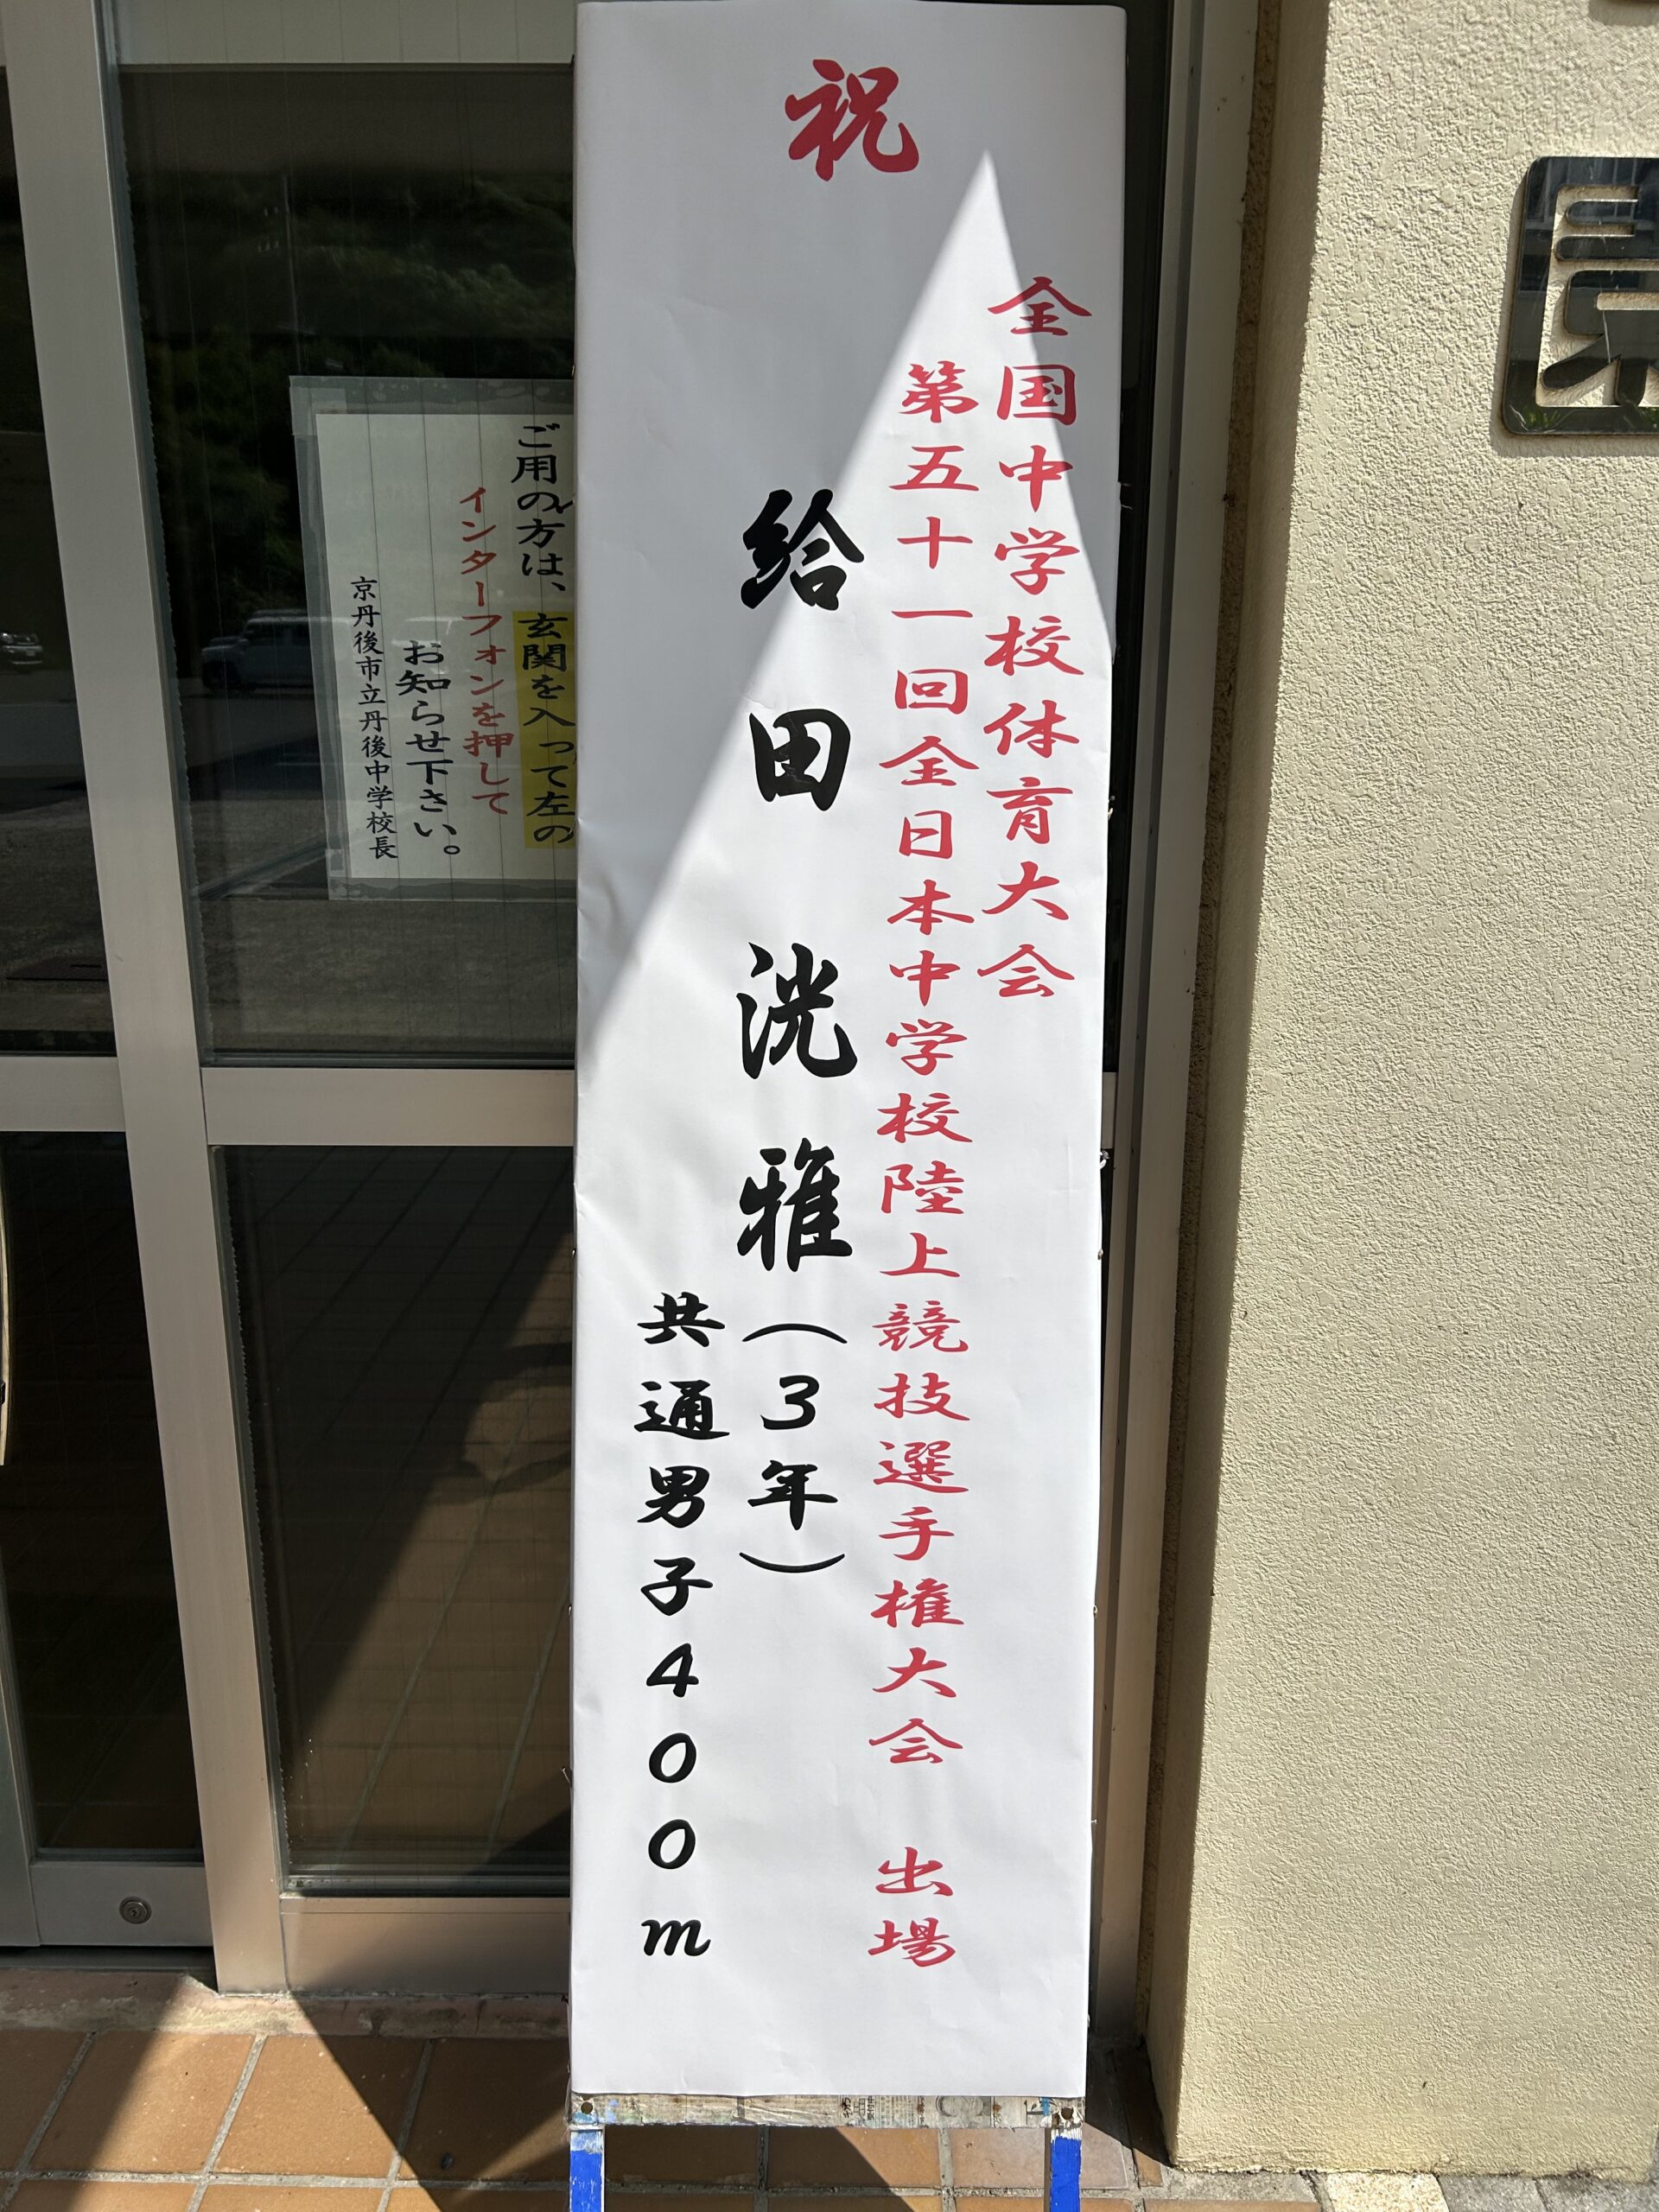 祝
全国中学校体育大会
第五十一回全日本中学校陸上競技選手権大会 出場
給田洸雅(3年)
共通男子400m
ご用の方は、玄関を入って左の
インターフォンを押して
お知らせ下さい。
京丹後市立丹後中学校長